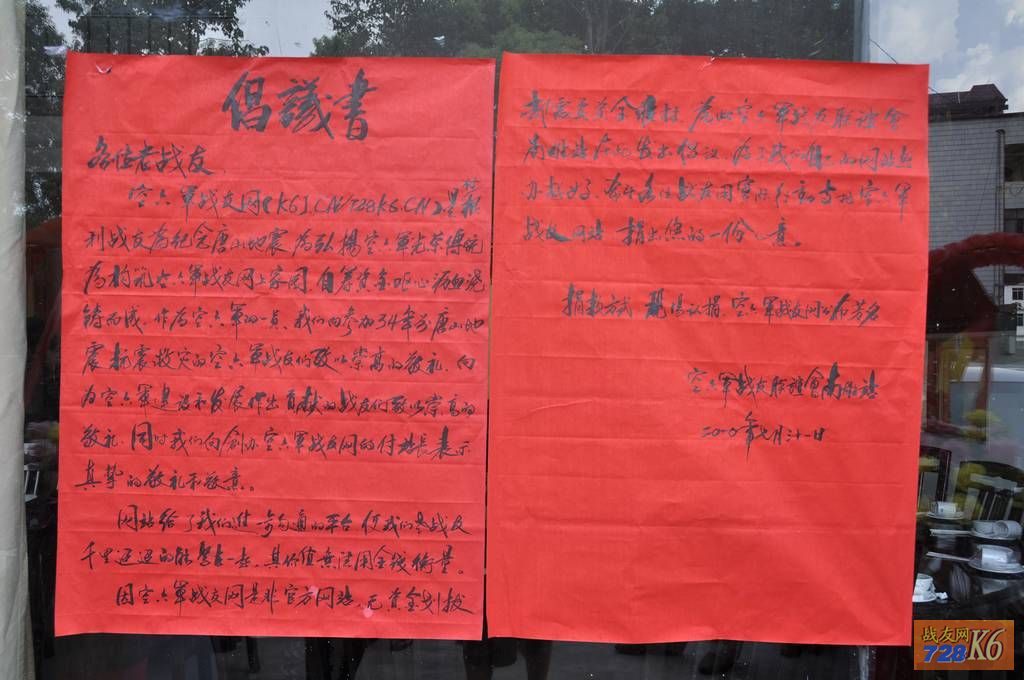 倡議書
各位老战友
空六军战友网
利战友为纪念唐山地震为弘揚空六军光荣傳统
为构筑空六军战友网上家园,自筹资金呕心沥血浇
铸而成。作为空六军的一员,我们向参加34年前唐山地
震抗震救灾的空六军战友们致以崇高的敬礼,向
为空六军建设和发展作出贡献的战友们致以崇高的
敬礼,同时我们向创办空六军战友网的付站長表示
真挚的敬礼和敬意。
网站给了我们这一个沟通的平台,使我们老战友
千里迢迢的能聚在一起,其价值無法用金钱衡量。
因空六军战友网是非官方网站,无资金划拨
为此空六军战友联谊会
发出倡议,为了我们唯一的网站越
办越好,各位战友用实际行動与地空六军
战友网站捐出您的一份心意。
捐款方式 现場认捐,空六军战友网公布芳名
空六军战友联谊会
二〇一〇年七月三十一日
战友网
728K6